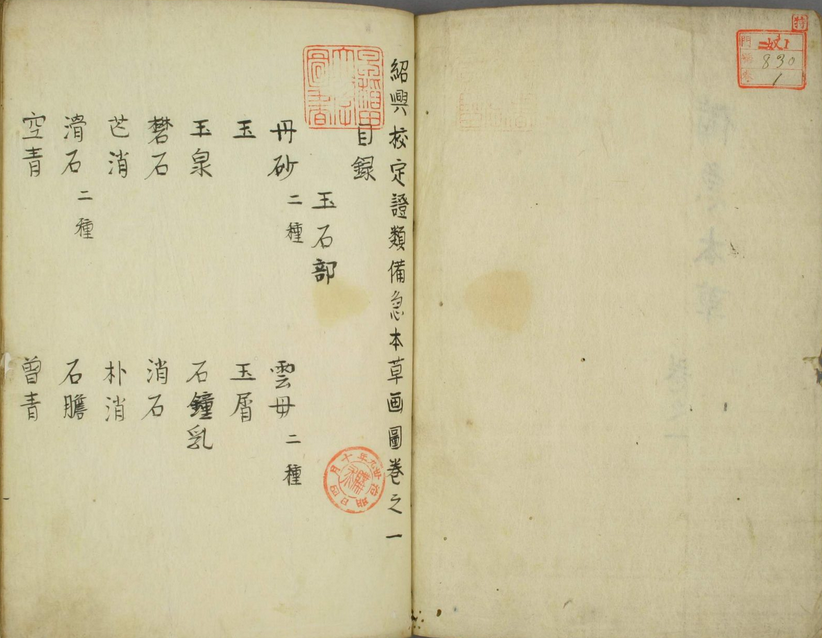 特
830
1
紹興校定證類備急本草画圖卷之一
目録
玉石部
丹砂二種 雲母二種
玉 玉屑
玉泉 石鐘乳
礬石 消石
芒消 朴消
滑石二種 石膽
空青 曾青
早稲田大学図書